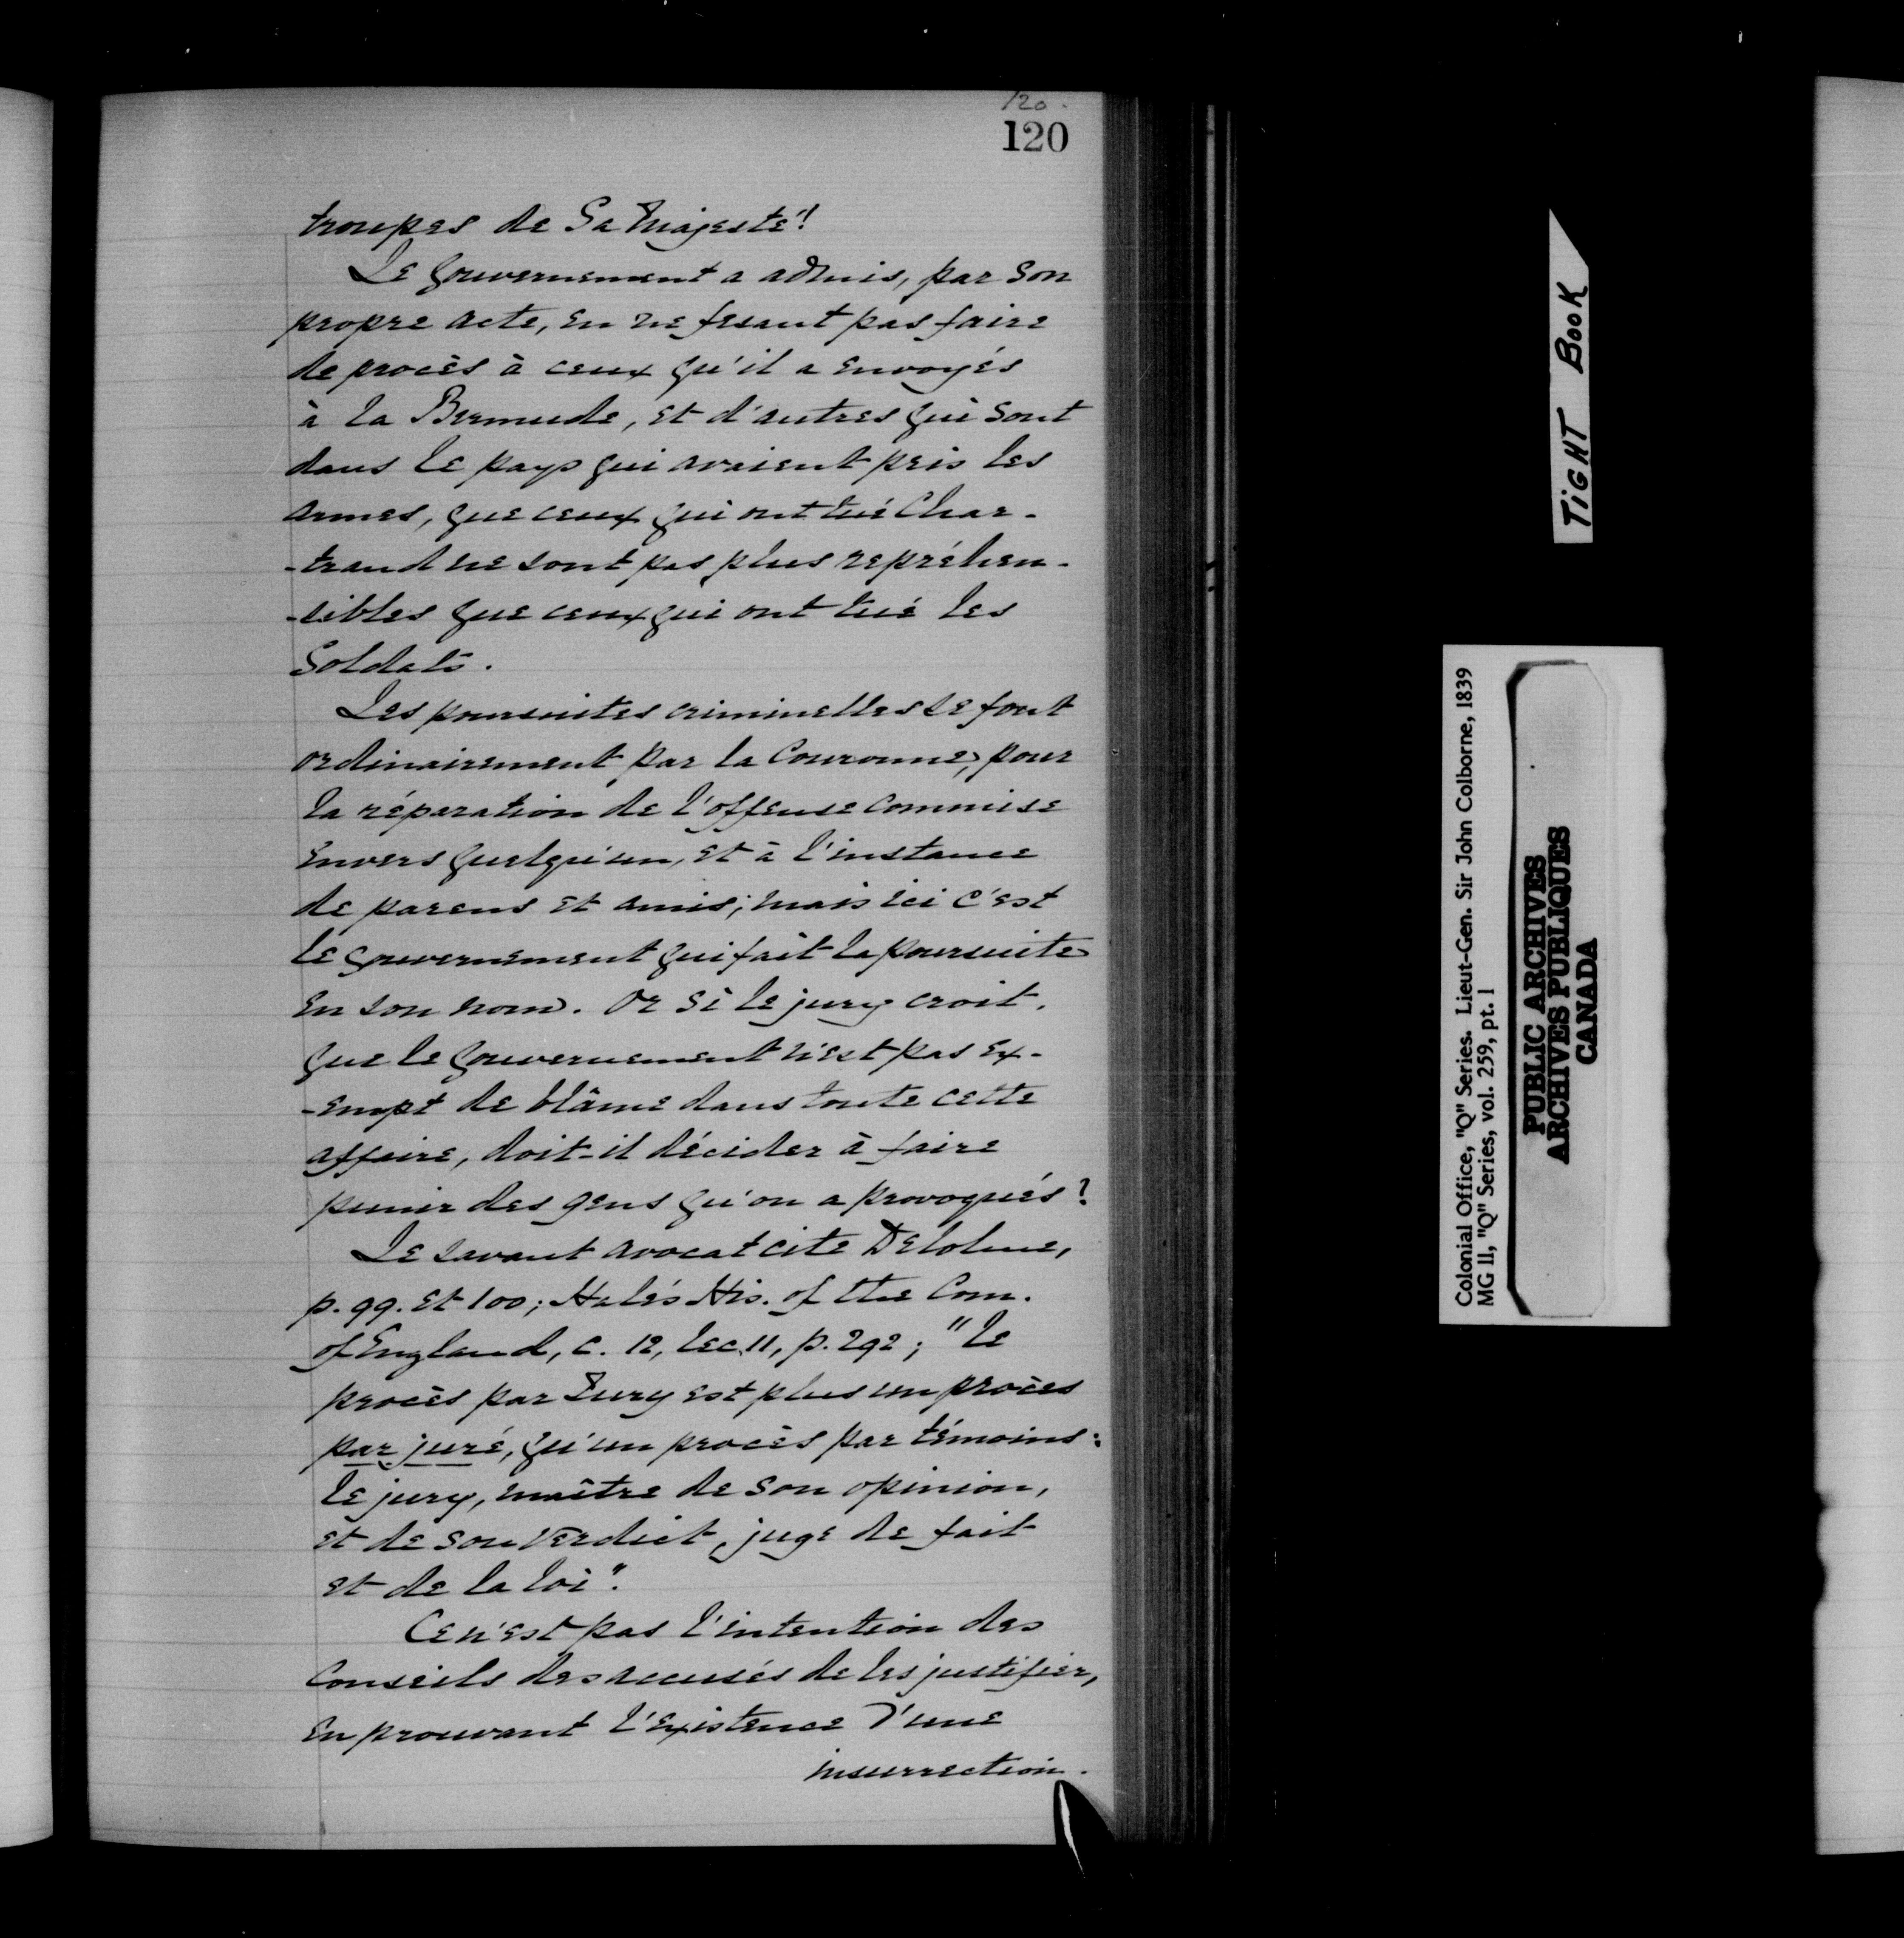 120.
120
troupes de Sa Majesté"!
Le Gouvernement a admis, par son
propre acte, en ne fesant pas faire
de procès à ceux qu'il a envoyés
à la Bermude, et d'autres qui sont
dans le pays qui avaient pris les
armes, que ceux qui ont tué Char-
-trand ne sont pas plus repréhen-
-sibles que ceux qui ont tué les
Soldats.
Les poursuites criminelles se font
ordinairement par la Couronne, pour
la réparation de l'offense commise
envers quelqu'un, et à l'instance
de parens et amis; mais ici c'est
le gouvernement qui fait la poursuite
en son nom. Or si le jury croit,
que le Gouvernement n'est pas ex-
-empt de blâme dans toute cette
affaire, doit-il décider à faire
punir des gens qu'on a provoqués?
Le savant avocat cite Delolme,
p. 99. et 100; Hale's His. of the Com.
of England, c. 12, lec. 11, p. 292; "le
procès par Jury est plus un procès
par juré, qu'un procès par témoins:
le jury, maître de son opinion,
et de son verdict, juge de fait
et de la loi".
Ce n'est pas l'intention des
Conseils des accusés de les justifier,
en prouvant l'existence d'une
insurrection.
TIGHT BOOK
Colonial Office, "Q" Series. Lieut-Gen. Sir John Colborne, 1839
MG 11, "Q" Series, vol. 259, pt. 1
PUBLIC ARCHIVES
ARCHIVES PUBLIQUES
CANADA